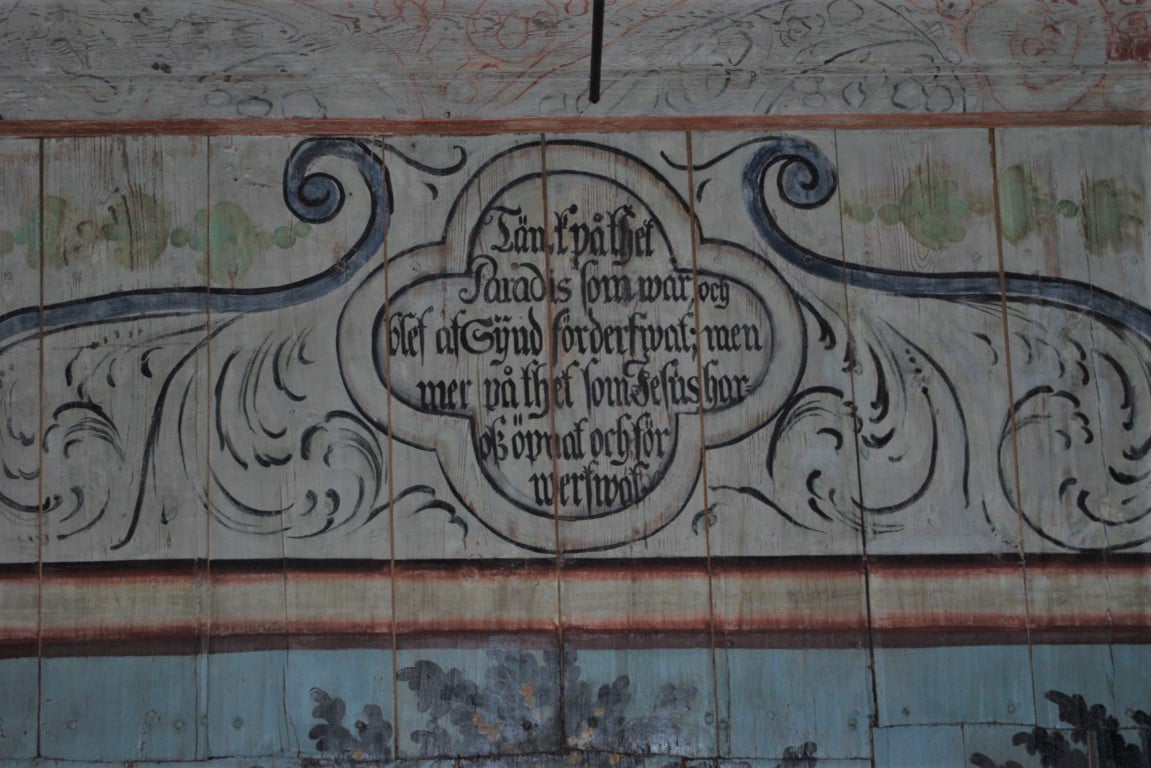 Tänk på thet
Paradis som war, och
blef af Synd förderfwat; men
mer på thet som Jesus har
oß öpnat och för
werfwat